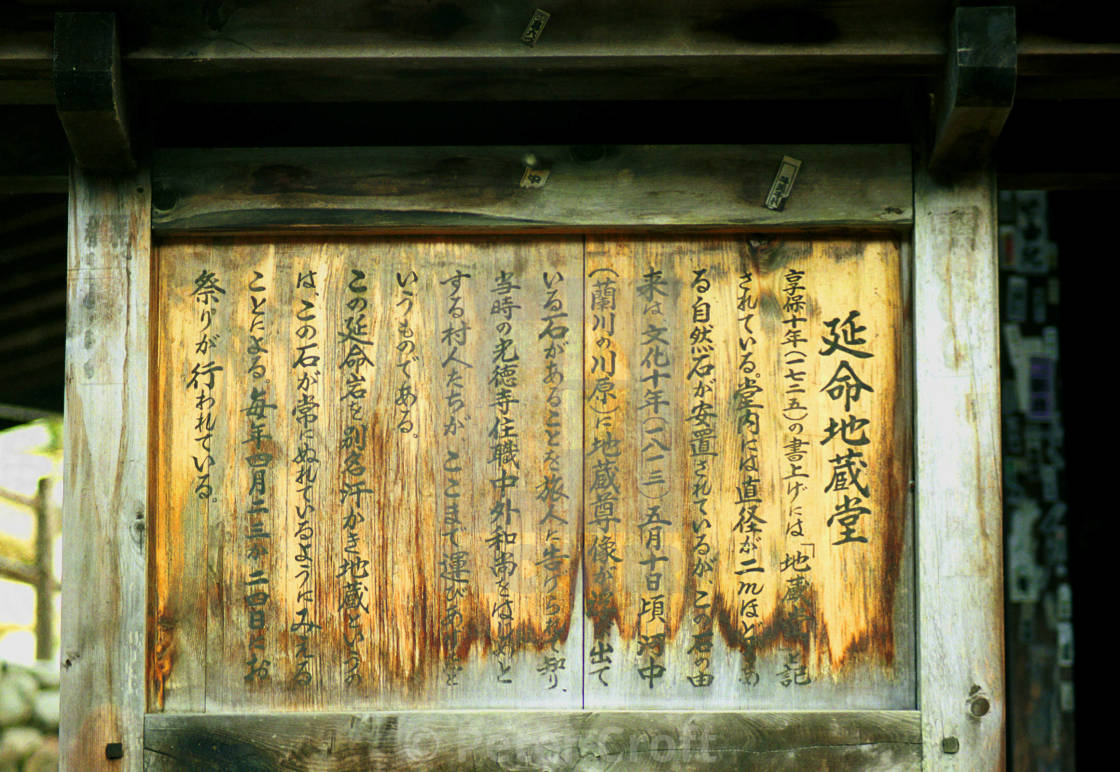 延命地蔵堂
享保十年(一七二五)の書上げには「地蔵 記
されている。堂内には直径が二mほど
る自然石が安置されているが、この石の由
来は文化十年(一八一三)五月十日頃 河中
(蘭川の川原)に地蔵尊像が 出て
いる石があることを旅人に告げられて知り、
当時の光徳寺住職中外和尚をはじめと
する村人たちが、ここまで運びあげたと
いうものである。
この延命岩を別名汗かき地蔵というの
は、この石が常にぬれているようにみえる
ことによる。毎年四月二三か二四日にお
祭りが行われている。
© Peter Croft